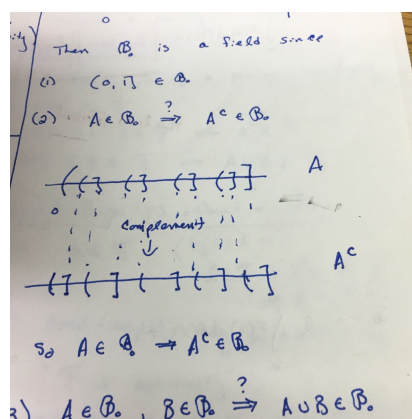 0 1
Then 𝔅₀ is a field since
(1) (0, 1] ∈ 𝔅₀
(2) A ∈ 𝔅₀ ?⇒ Aᶜ ∈ 𝔅₀
A
0
Complement
Aᶜ
So A ∈ 𝔅₀ ⇒ Aᶜ ∈ 𝔅₀
3) A ∈ 𝔅₀, B ∈ 𝔅₀ ?⇒ A ∪ B ∈ 𝔅₀